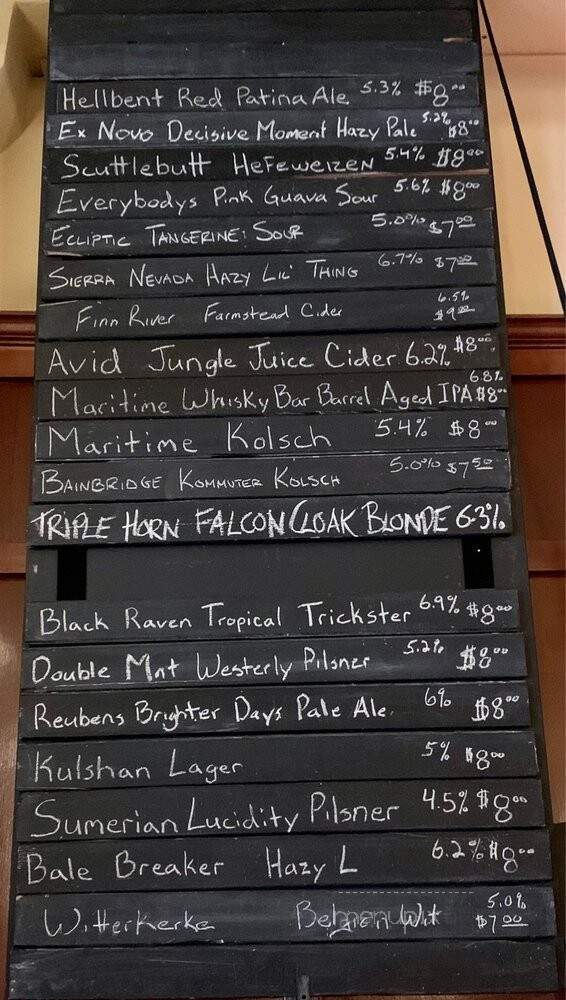 Hellbent Red Patina Ale 5.3% $8.00
Ex Novo Decisive Moment Hazy Pale 5.2% $8.00
Scuttlebutt Hefeweizen 5.4% $8.00
Everybodys Pink Guava Sour 5.6% $8.00
ECLIPTIC TANGERINE SOUR 5.0% $7.00
SIERRA NEVADA HAZY LIL' THING 6.7% $7.00
Finn River Farmstead Cider 6.5% $9.00
Avid Jungle Juice Cider 6.2% $8.00
Maritime Whisky Bar Barrel Aged IPA 6.8% $8.00
Maritime Kolsch 5.4% $8.00
BAINBRIDGE KOMMUTER KOLSCH 5.0% $7.50
TRIPLE HORN FALCON CLOAK BLONDE 6.3%
Black Raven Tropical Trickster 6.9% $8.00
Double Mnt Westerly Pilsner 5.2% $8.00
Reubens Brighter Days Pale Ale 6% $8.00
Kulshan Lager 5% $8.00
Sumerian Lucidity Pilsner 4.5% $8.00
Bale Breaker Hazy L 6.2% $8.00
Witterkerke Belgian Wit 5.0% $7.00